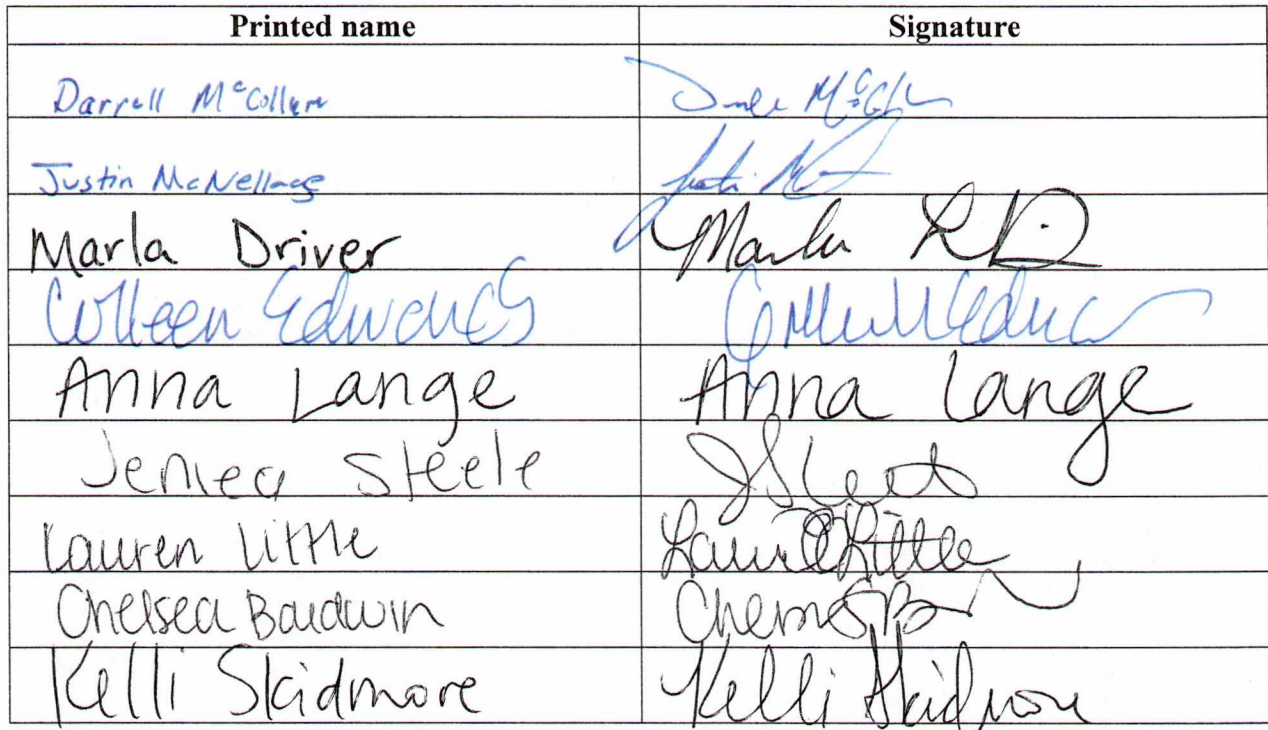 Printed name Signature
Darrell McCollum
Justin McNellage
Marla Driver Marla R D
Colleen Edwards Colleen M Edwards
Anna Lange Anna Lange
Jemea Steele
Lauren Little Lauren Little
Chelsea Baldwin
Kelli Skidmore Kelli Skidmore